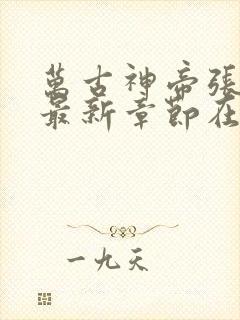 萬古神帝張
最新章節在
一九天